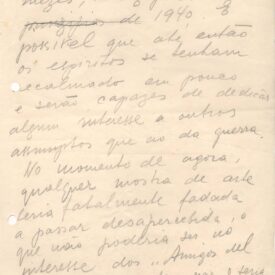 de 1940. É
possivel que até então
os espiritos se tenham
recalmado um pouco
e serão capazes de dedicar
algum interesse a outros
assumptos que ao da guerra.
No momento de agora,
qualquer mostra de arte
seria fatalmente fadada
a passar desapercebida, o
que não poderia ser no
interesse dos "Amigos del